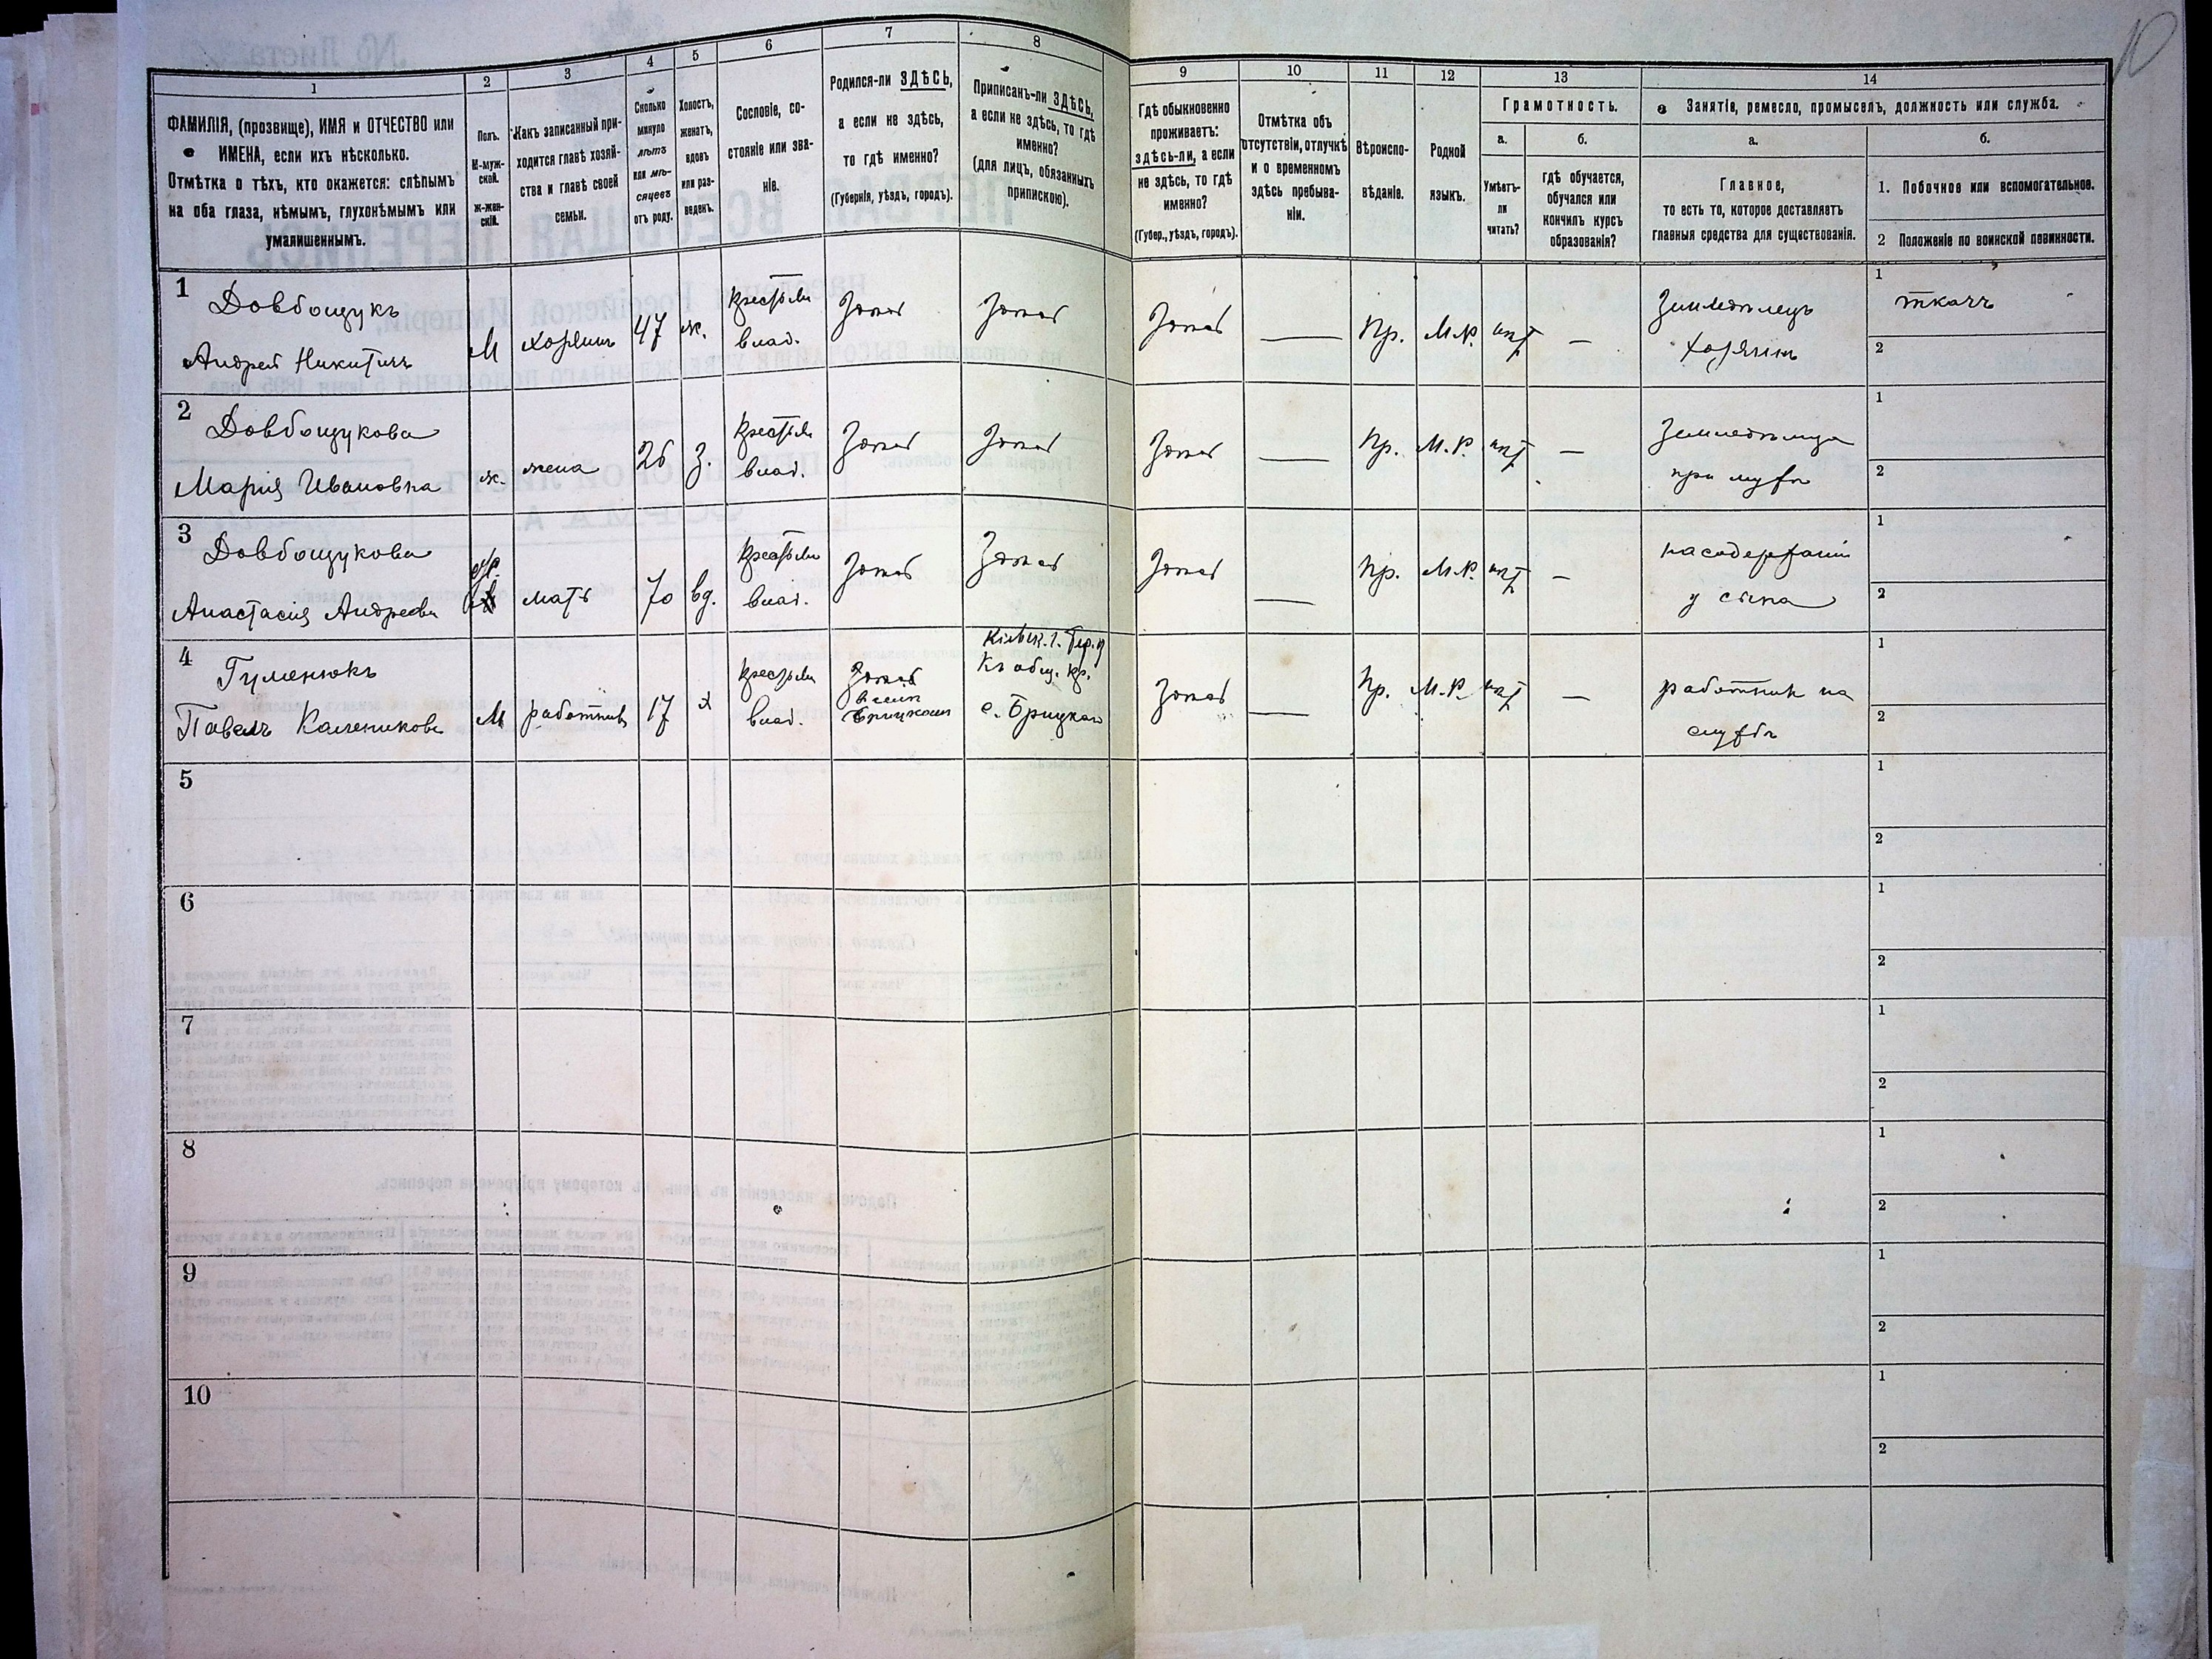 10
1
2
3
4
5
6
7
8
9
10
11
12
13
14
ФАМИЛІЯ, (прозвище), ИМЯ и ОТЧЕСТВО или
ИМЕНА, если ихъ нѣсколько.
Отмѣтка о тѣхъ, кто окажется: слѣпымъ
на оба глаза, нѣмымъ, глухонѣмымъ или
умалишеннымъ.
Полъ.
М-муж-
ской.
Ж-жен-
скій.
Какъ записанный при-
ходится главѣ хозяй-
ства и главѣ своей
семьи.
Сколько
минуло
лѣтъ
или мѣ-
сяцевъ
отъ роду.
Холостъ,
женатъ,
вдовъ
или раз-
веденъ.
Сословіе, со-
стояніе или зва-
ніе.
Родился-ли ЗДѢСЬ,
а если не здѣсь,
то гдѣ именно?
(Губернія, уѣздъ, городъ).
Приписанъ-ли ЗДѢСЬ,
а если не здѣсь, то гдѣ
именно?
(для лицъ, обязанныхъ
припискою).
Гдѣ обыкновенно
проживаетъ:
здѣсь-ли, а если
не здѣсь, то гдѣ
именно?
(Губер., уѣздъ, городъ).
Отмѣтка объ
отсутствіи, отлучкѣ
и о временномъ
здѣсь пребыва-
ніи.
Вѣроиспо-
вѣданіе.
Родной
языкъ.
Грамотность.
а.
б.
Умѣетъ-
ли
читать?
гдѣ обучается,
обучался или
кончилъ курсъ
образованія?
Занятіе, ремесло, промыселъ, должность или служба.
а.
б.
Главное,
то есть то, которое доставляетъ
главныя средства для существованія.
1. Побочное или вспомогательное.
2 Положеніе по воинской повинности.
1 Довбощукъ
Андрей Никитичъ
М хозяинъ 47 ж. крестьян влад. Здесь Здесь Здесь — Пр. М.Р. нѣт — Земледѣлецъ хозяинъ
1 ткачъ
2
2 Довбощукова
Мария Ивановна
ж. жена 26 з. крестьян влад. Здесь Здесь Здесь — Пр. М.Р. нѣт — Земледѣлица при мужѣ
1
2
3 Довбощукова
Анастасия Андреевн
Ж. мать 70 вд. крестьян влад. Здесь Здесь Здесь — Пр. М.Р. нѣт — на содержании у сына
1
2
4 Гуменюкъ
Павелъ Калениковъ
М работникъ 17 х крестьян влад. Здесь в селѣ Брицком
Къ общ. кр.
с. Брицкаго
Здесь — Пр. М.Р. нѣт — работник на службѣ
1
2
5
1
2
6
1
2
7
1
2
8
1
2
9
1
2
10
1
2